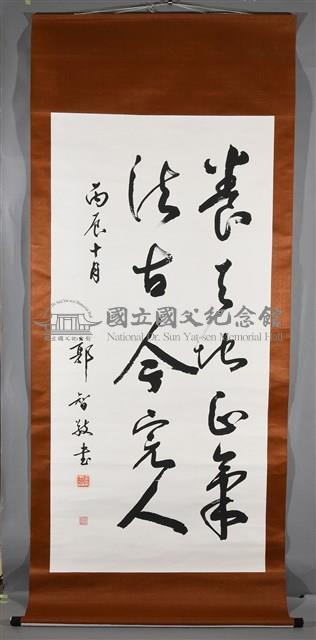 養天地正氣
法古今完人
丙辰十月
鄭智敏書
國立國父紀念館
National Dr. Sun Yat-sen Memorial Hall